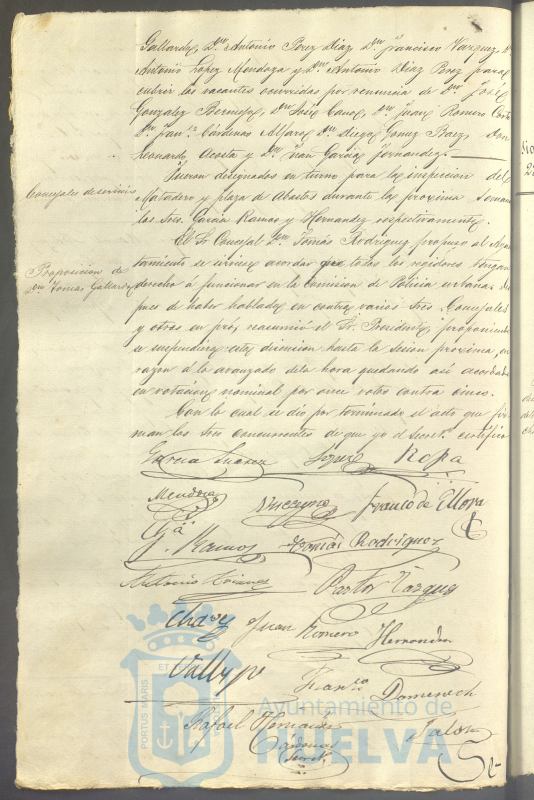 Gallardo, Dn. Antonio Perez Diaz Dn. Francisco Vazquez, Dn
Antonio Lopez Mendoza y Dn. Antonio Diaz Perez para
cubrir las vacantes ocurridas por renuncia de Dn. José
Gonzalez Bermejo, Dn José Cano, Dn. Juan Romero
Dn Franco. Cárdenas Dn. Diego Gomez Baez, Don
Leonardo Acosta y Dn. Juan Garcia Fernandez.
Concejales de servicio
Fueron designados en turno para la inspeccion del
Matadero y plaza de Abastos durante la proxima semana
los Sres. Garcia Ramos y Hernandez respectivamente.
Proposicion de
Dn Tomás Gallardo
El Sr Concejal Dn. Tomás Rodriguez propuso al Ayun
tamiento se sirviese acordar que todos los regidores tengan
derecho á funcionar en la Comision de Policia urbana. Des
pues de haber hablado en contra varios Sres. Concejales
y otros en pró, resumió el Sr. Presidente, proponiendo
se suspendiese esta discusion hasta la sesion proxima, en
razon á lo avanzado de la hora quedando así acordado
en votacion nominal por once votos contra cinco.
Con lo cual se dió por terminado el acto que fir
man los Sres concurrentes de que yo el Secreto. certifico
Garcia Suarez Lopez Ropa
Mendoza Franco de
Ga. Ramos Tomás Rodriguez
Antonio Pastor Vazquez
Chaves Juan Romero Hernandez
Domenech
Rafael Hernandez
Cardenal
Secreto.
Jalon
ET TERRAE
PORTUS MARIS
Ayuntamiento de
HUELVA